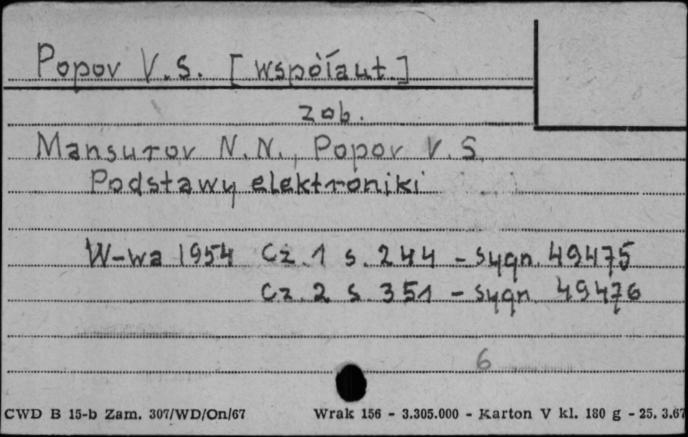 Popov V.S. [współaut.]
zob.
Mansurov N.N., Popov V.S.
Podstawy elektroniki
W-wa 1954 Cz. 1 s. 244 - sygn. 49475
Cz. 2 s. 351 - sygn. 49476
6
CWD B 15-b Zam. 307/WD/On/67 Wrak 156 - 3.305.000 - Karton V kl. 180 g - 25. 3.67